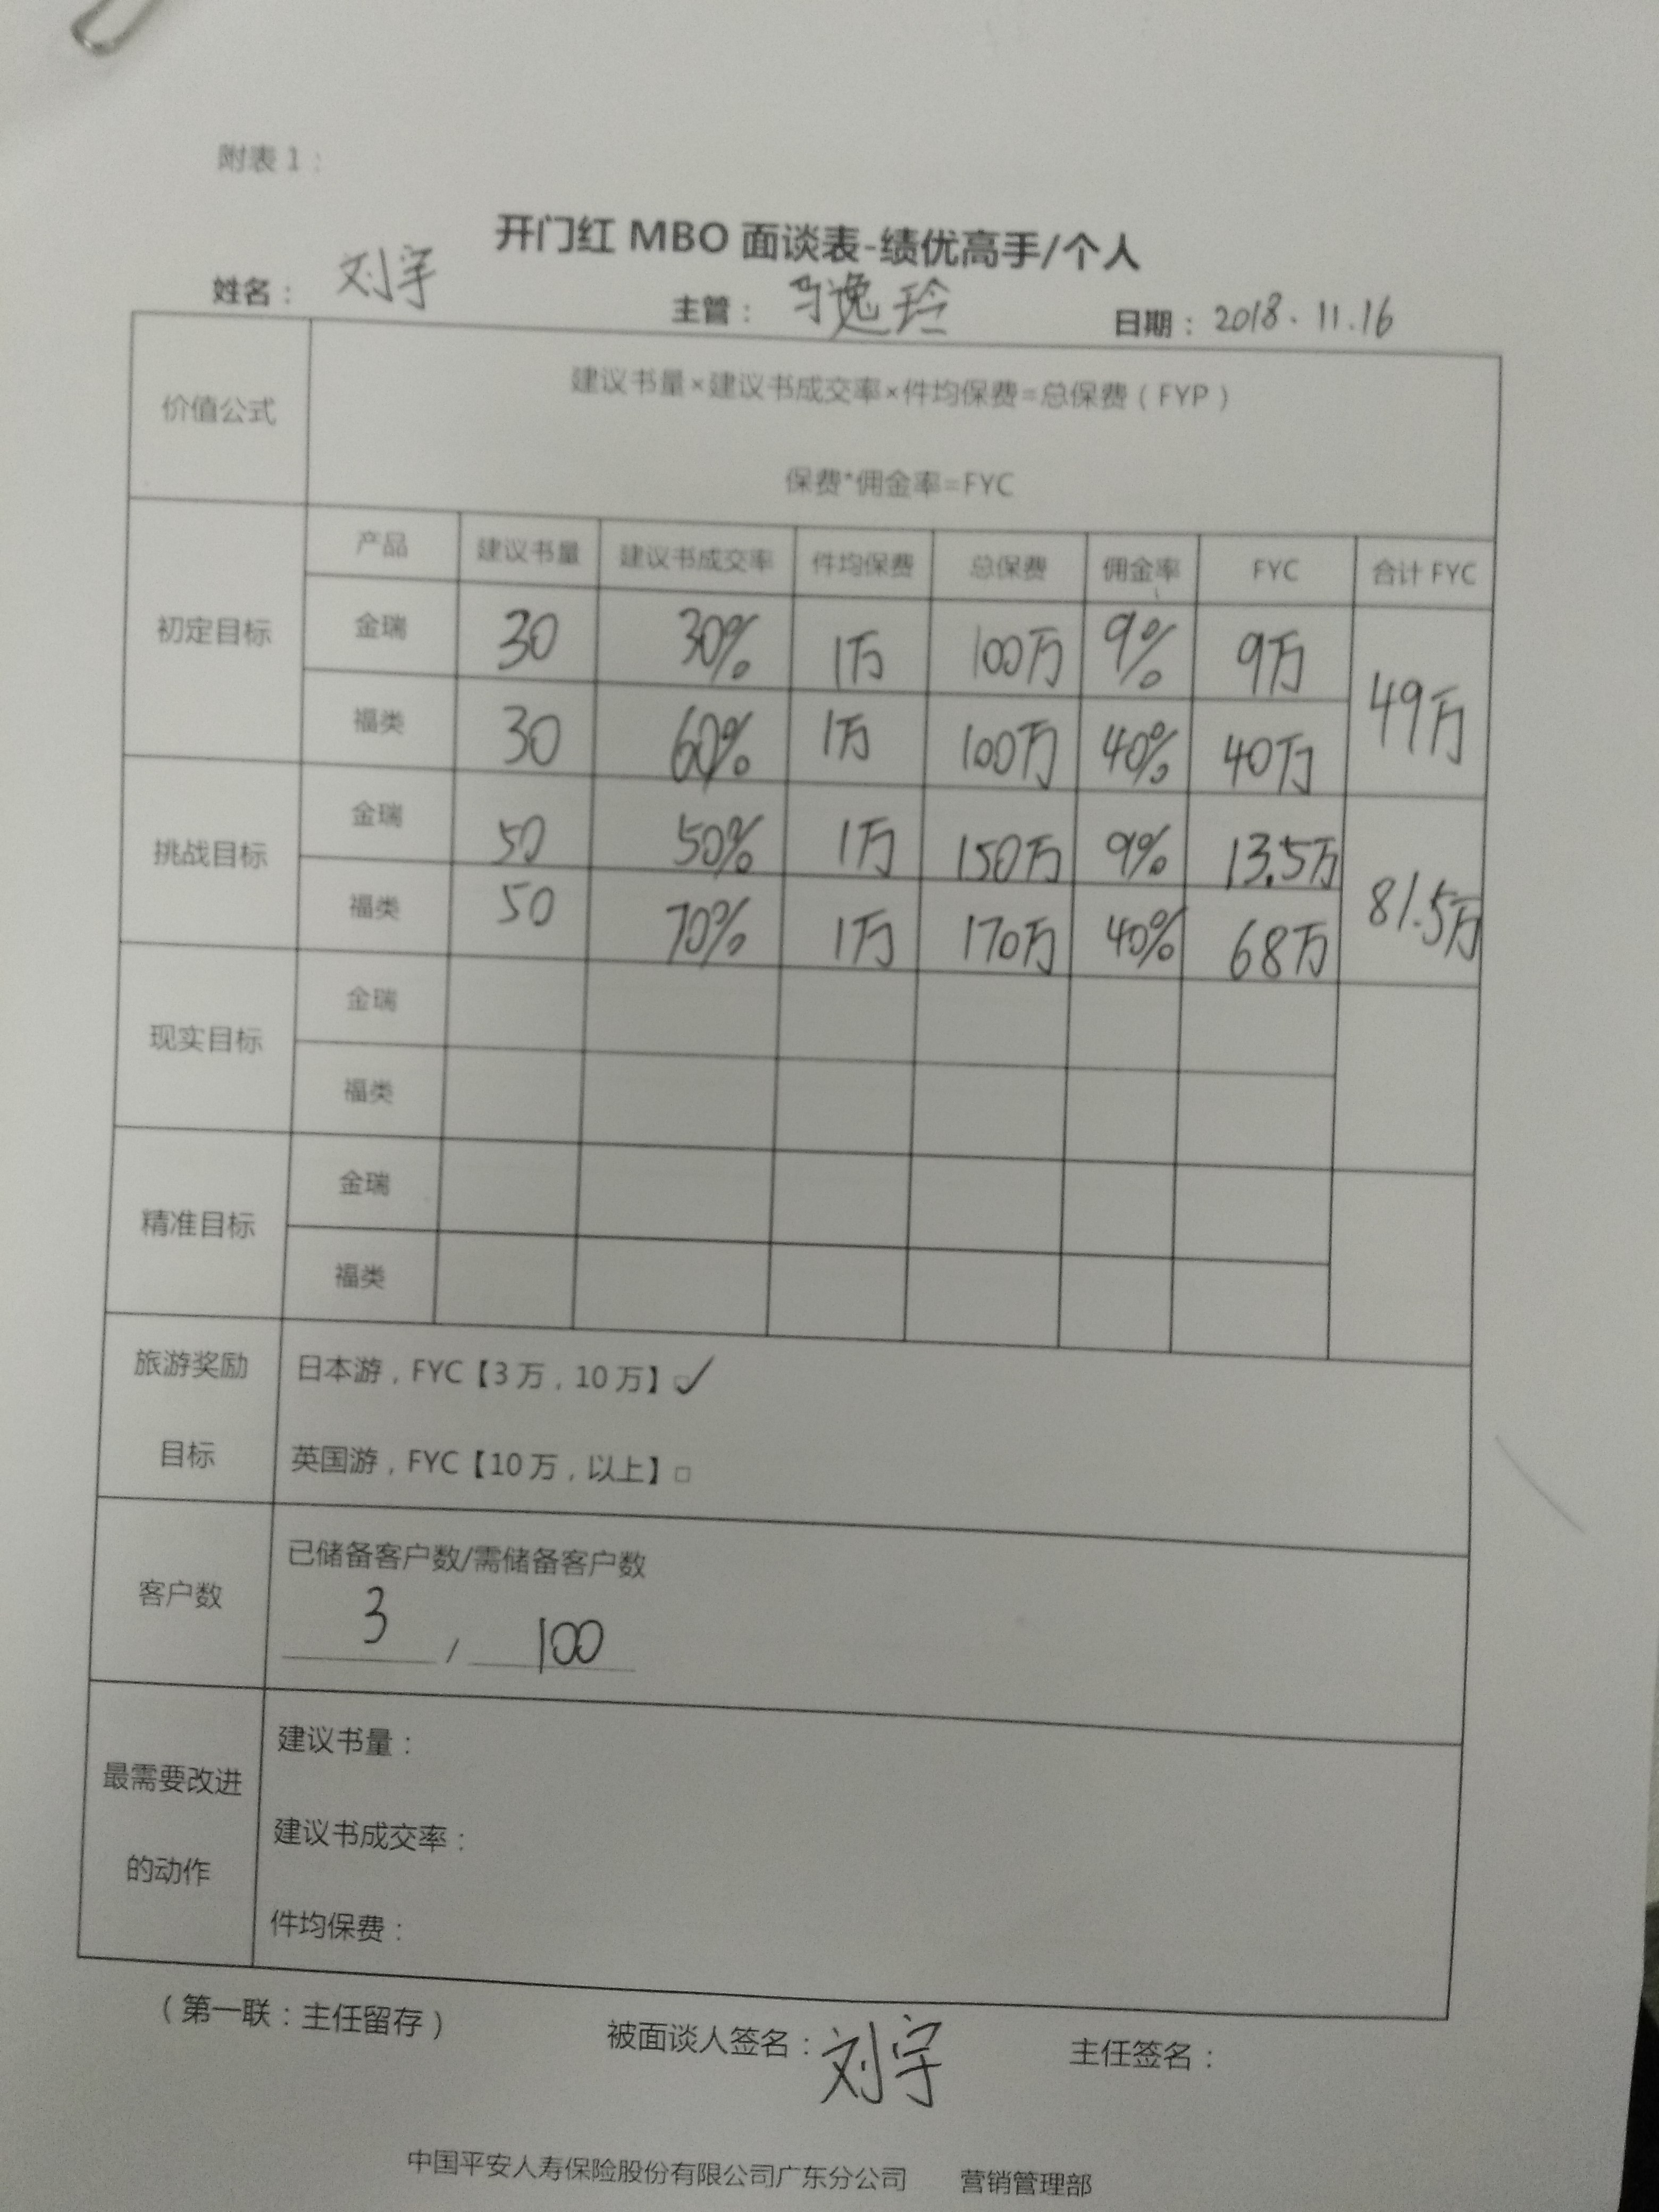 附表 1：
开门红 MBO 面谈表-绩优高手/个人
姓名： 刘宇 主管： 逸玲 日期：2018.11.16
价值公式
建议书量×建议书成交率×件均保费=总保费（FYP）
保费*佣金率=FYC
产品 建议书量 建议书成交率 件均保费 总保费 佣金率 FYC 合计 FYC
初定目标
金瑞 30 30% 1万 100万 9% 9万 49万
福类 30 60% 1万 100万 40% 40万
挑战目标
金瑞 50 50% 1万 150万 9% 13.5万 81.5万
福类 50 70% 1万 170万 40% 68万
现实目标
金瑞
福类
精准目标
金瑞
福类
旅游奖励
目标
日本游，FYC【3 万，10 万】□✓
英国游，FYC【10 万，以上】□
客户数
已储备客户数/需储备客户数
3 / 100
最需要改进
的动作
建议书量：
建议书成交率：
件均保费：
（第一联：主任留存） 被面谈人签名：刘宇 主任签名：
中国平安人寿保险股份有限公司广东分公司 营销管理部